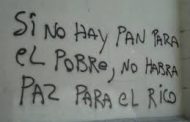 Si NO HAY PAN PARA
eL POBRE, NO HABRA
PAZ PARA eL RiCO